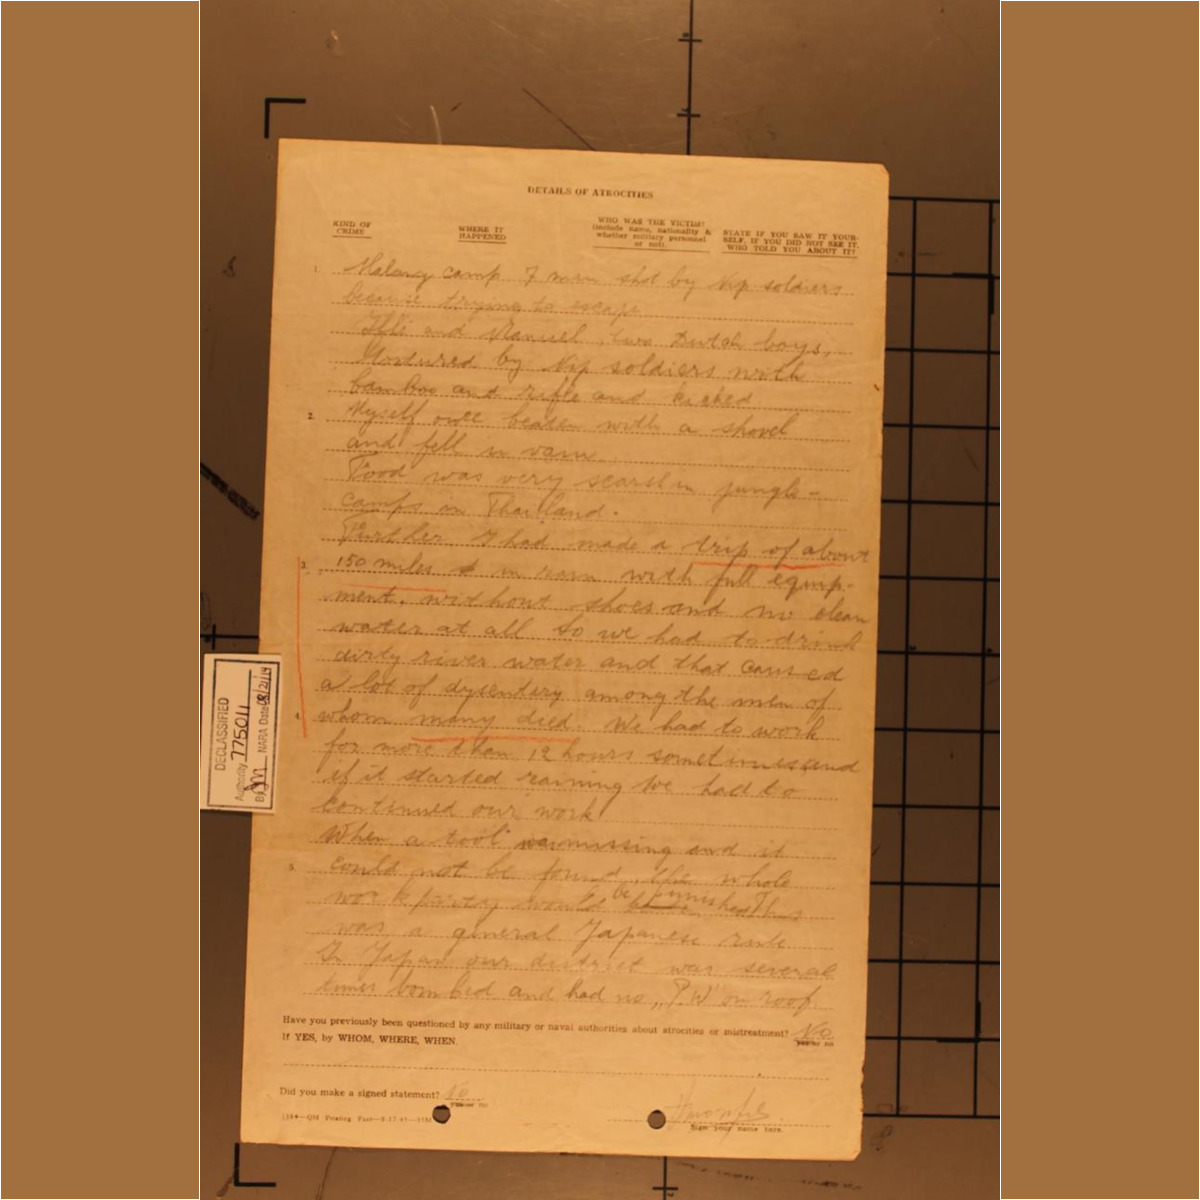 DETAILS OF ATROCITIES
KIND OF CRIME
WHERE IT HAPPENED
WHO WAS THE VICTIM? (include name, nationality & whether military personnel or not).
STATE IF YOU SAW IT YOURSELF, IF YOU DID NOT SEE IT, WHO TOLD YOU ABOUT IT?
1. Malang camp 7 men shot by Nip soldiers
because trying to escape
and Manuel, two Dutch boys,
tortured by Nip soldiers with
bamboo and rifle and kicked
2. Myself beaten with a shovel
and fell in
Food was very scarse in jungle-
camps in Thailand.
Further I had made a trip of about
3. 150 miles in rain with full equip-
ment, without shoes and no clean
water at all so we had to drink
dirty river water and that caused
a lot of dysentery among the men of
4. whom many died. We had to work
for more than 12 hours sometimes and
if it started raining we had to
continued our work
When a tool was missing and it
5. could not be found, the whole
work party would be punished This
was a general Japanese rule
In Japan our district was several
times bombed and had no „P.W" on roof.
Have you previously been questioned by any military or naval authorities about atrocities or mistreatment? No
yes or no
If YES, by WHOM, WHERE, WHEN.
Did you make a signed statement? No
yes or no
Sign your name here.
DECLASSIFIED
Authority 775011
By NARA Date 08/21/14